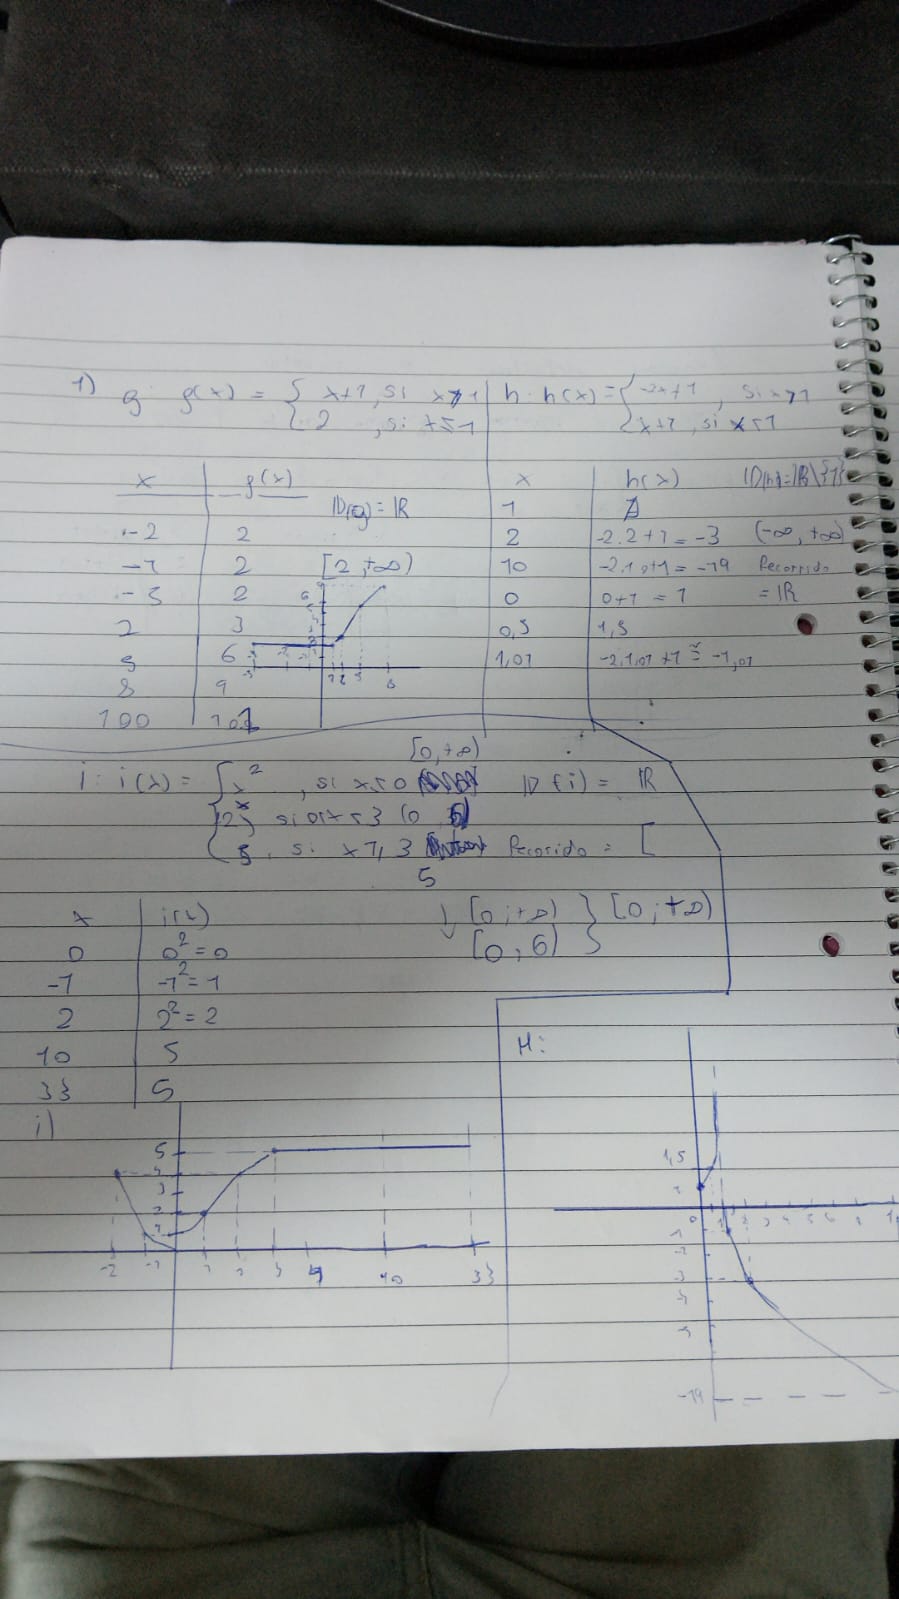 1) g: g(x) = { x+1, si x>1
{ 2 , si x≤1
x | g(x)
-2 | 2
-1 | 2
-3 | 2
2 | 3
5 | 6
8 | 9
100 | 101
D(g) = ℝ
[2, +∞)
h: h(x) = { -2x+1, si x>1
{ x+1, si x<1
x | h(x)
1 | ∄
2 | -2.2+1 = -3
10 | -2.10+1 = -19
0 | 0+1 = 1
0,5 | 1,5
1,01 | -2.1,01+1 ≅ -1,01
D(h) = ℝ\{1}
(-∞, +∞)
Recorrido
= ℝ
[0,+∞)
i: i(x) = { x² , si x≤0
{ 2x, si 0<x<3 (0
{ 5, si x≥3
5
D(i) = ℝ
Recorrido = [
↓ [0,+∞) } [0,+∞)
[0,6) }
x | i(x)
0 | 0² = 0
-1 | -1² = 1
2 | 2² = 2
10 | 5
33 | 5
i)
5
4
3
2
1
-2 -1 1 2 3 4 10 33
H:
1,5
1
0 1 2 3 4 5 6
-1
-2
-3
-19